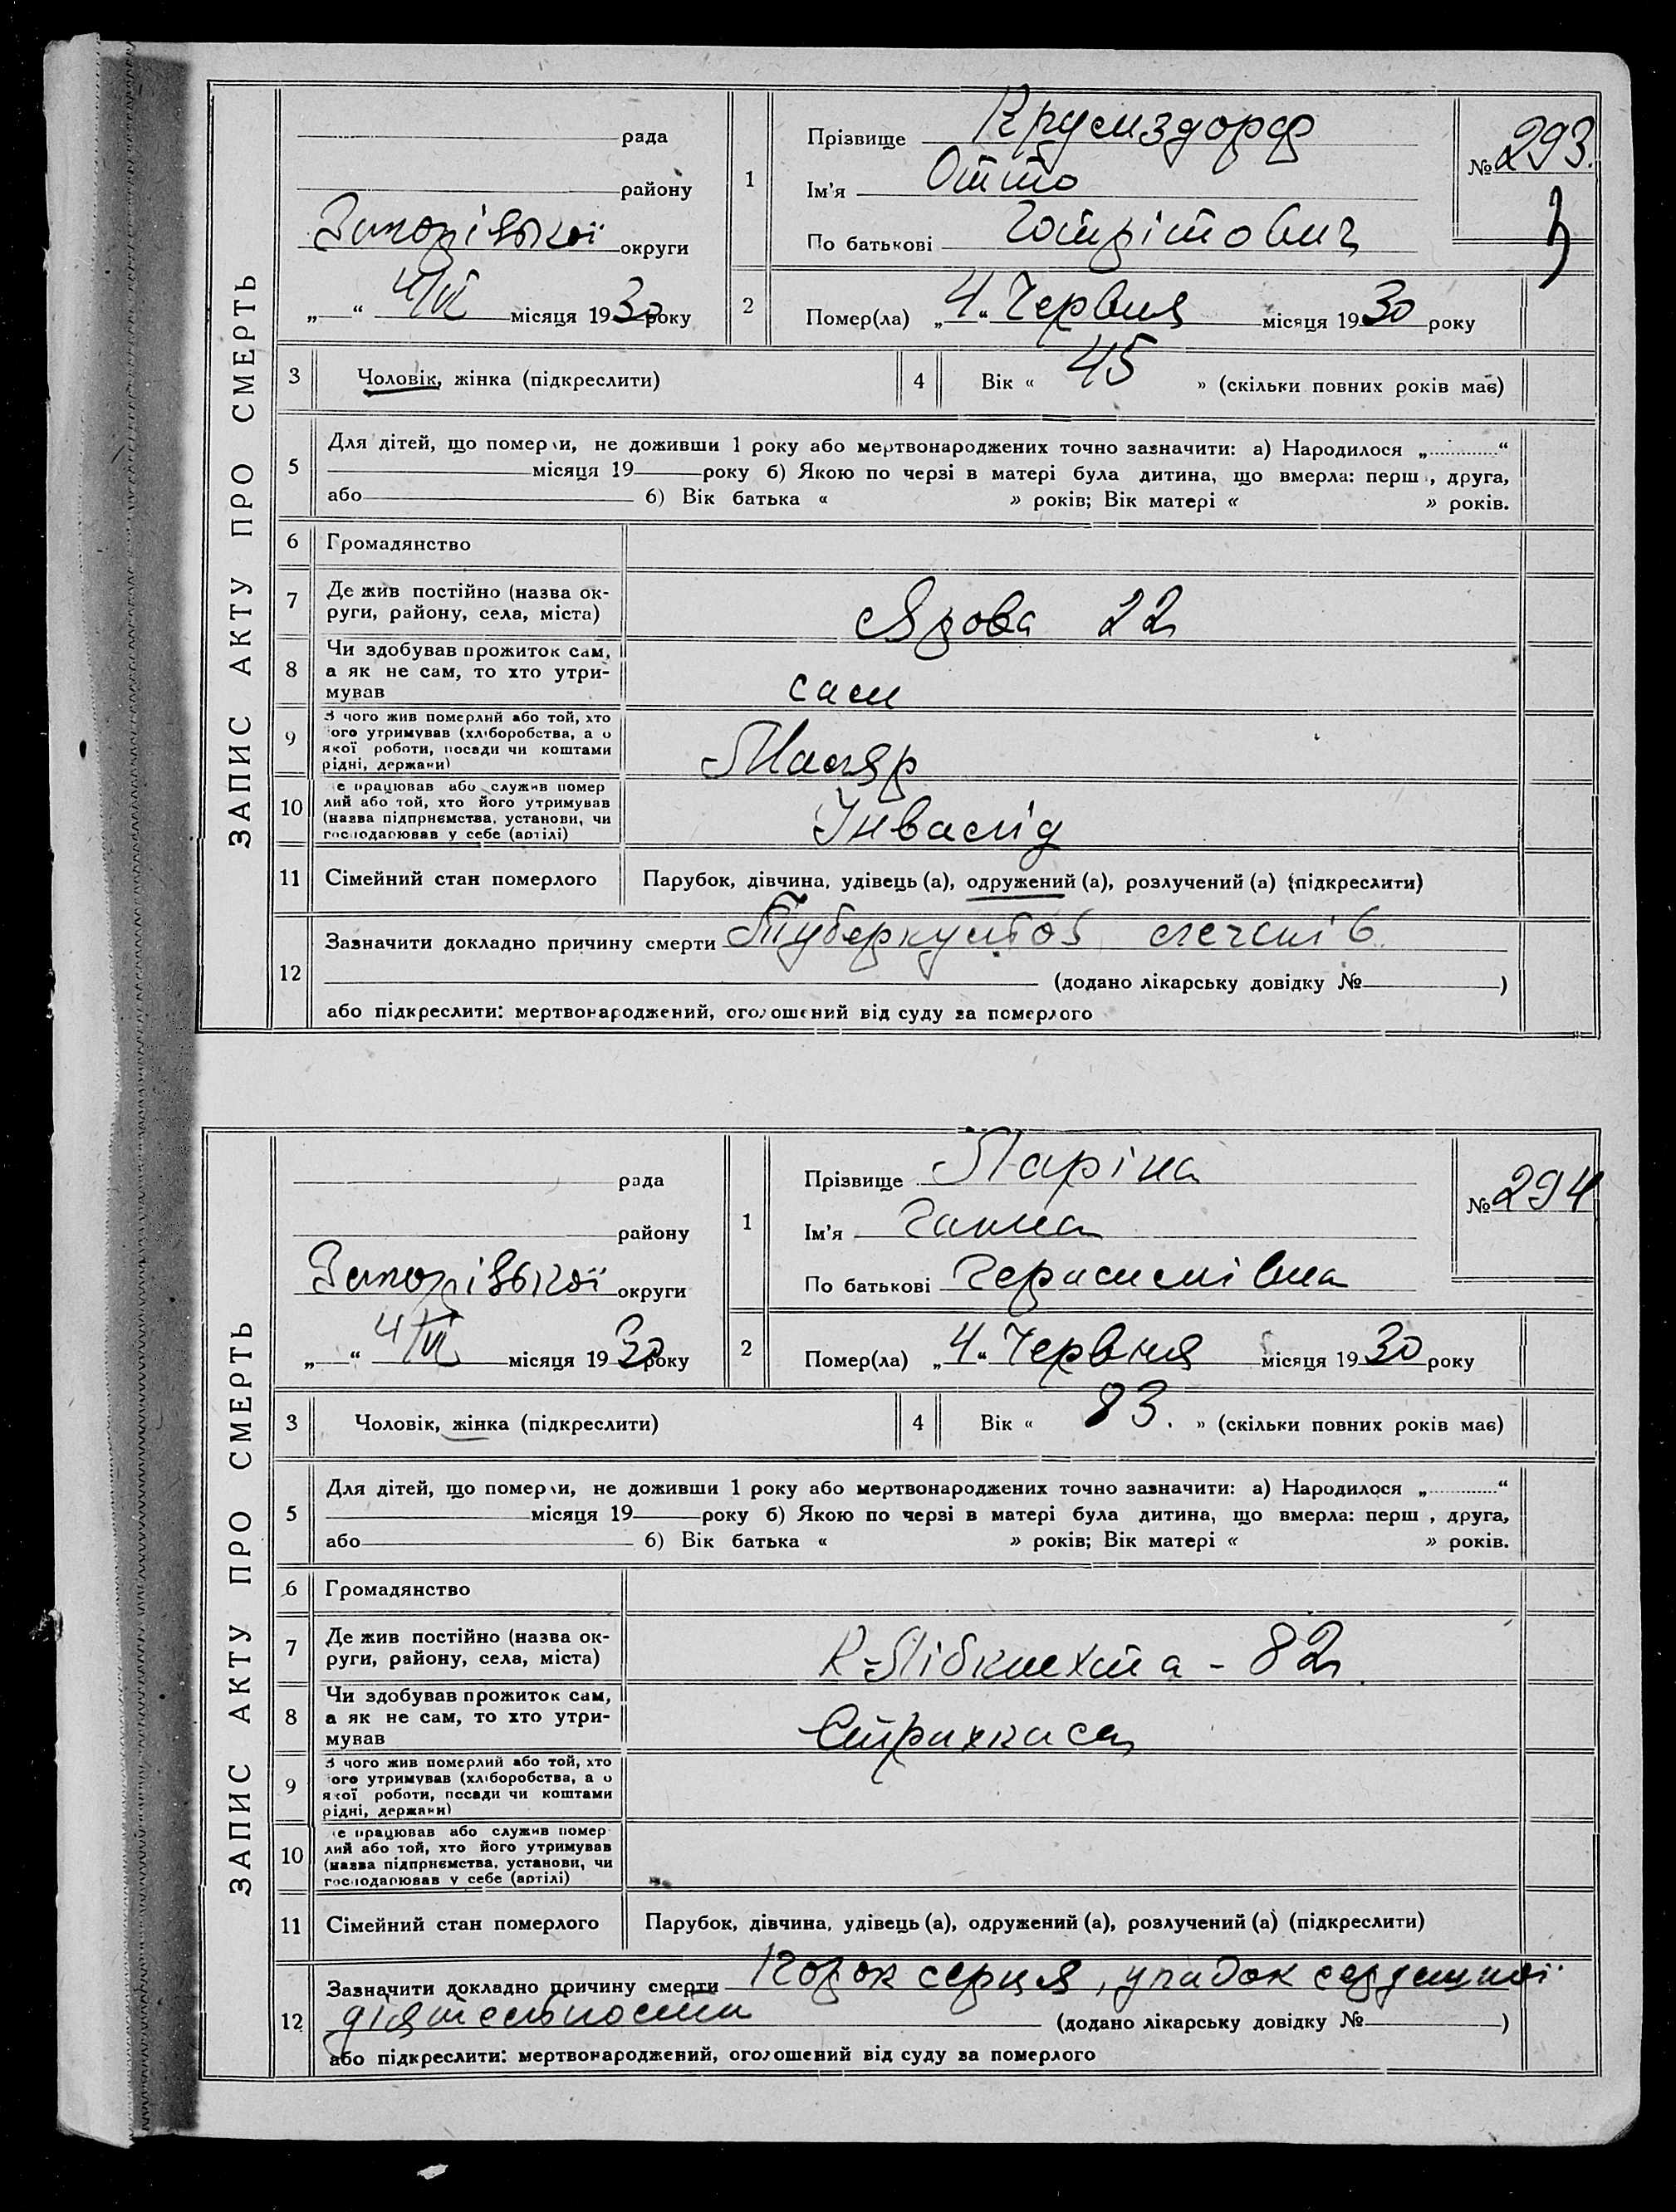 ЗАПИС АКТУ ПРО СМЕРТЬ
рада
району
округи
„ “ 4/VI місяця 1930 року
1 Прізвище Крумздорф
Ім'я Отто
По батькові
№ 293.
2 Помер(ла) „4“ Червня місяця 1930 року
3 Чоловік, жінка (підкреслити)
4 Вік « 45 » (скільки повних років має)
5 Для дітей, що померли, не доживши 1 року або мертвонароджених точно зазначити: а) Народилося „ “
місяця 19 року б) Якою по черзі в матері була дитина, що вмерла: перш , друга,
або 6) Вік батька « » років; Вік матері « » років.
6 Громадянство
7 Де жив постійно (назва ок-
руги, району, села, міста)
22
8 Чи здобував прожиток сам,
а як не сам, то хто утри-
мував
сам
9 З чого жив померлий або той, хто
ого утримував (хліборобства, а о
якої роботи, посади чи коштами
рідні, держави)
Маляр
10 е працював або служив помер
лий або той, хто його утримував
(назва підприємства, установи, чи
господарював у себе (артілі)
Інвалід
11 Сімейний стан померлого Парубок, дівчина, удівець (а), одружений (а), розлучений (а) (підкреслити)
12 Зазначити докладно причину смерти Туберкульоз легенів
(додано лікарську довідку № )
або підкреслити: мертвонароджений, оголошений від суду за померлого
ЗАПИС АКТУ ПРО СМЕРТЬ
рада
району
округи
„ “ 4/VI місяця 1930 року
1 Прізвище Ларіна
Ім'я Ганна
По батькові Герасимівна
№ 294
2 Помер(ла) „4“ Червня місяця 1930 року
3 Чоловік, жінка (підкреслити)
4 Вік « 83. » (скільки повних років має)
5 Для дітей, що померли, не доживши 1 року або мертвонароджених точно зазначити: а) Народилося „ “
місяця 19 року б) Якою по черзі в матері була дитина, що вмерла: перш , друга,
або 6) Вік батька « » років; Вік матері « » років.
6 Громадянство
7 Де жив постійно (назва ок-
руги, району, села, міста)
К-Лібкнехта - 82
8 Чи здобував прожиток сам,
а як не сам, то хто утри-
мував
Страхкаса
9 З чого жив померлий або той, хто
ого утримував (хліборобства, а о
якої роботи, посади чи коштами
рідні, держави)
10 е працював або служив помер
лий або той, хто його утримував
(назва підприємства, установи, чи
господарював у себе (артілі)
11 Сімейний стан померлого Парубок, дівчина, удівець (а), одружений (а), розлучений (а) (підкреслити)
12 Зазначити докладно причину смерти Порок серця, упадок сердешної
діятельности (додано лікарську довідку № )
або підкреслити: мертвонароджений, оголошений від суду за померлого